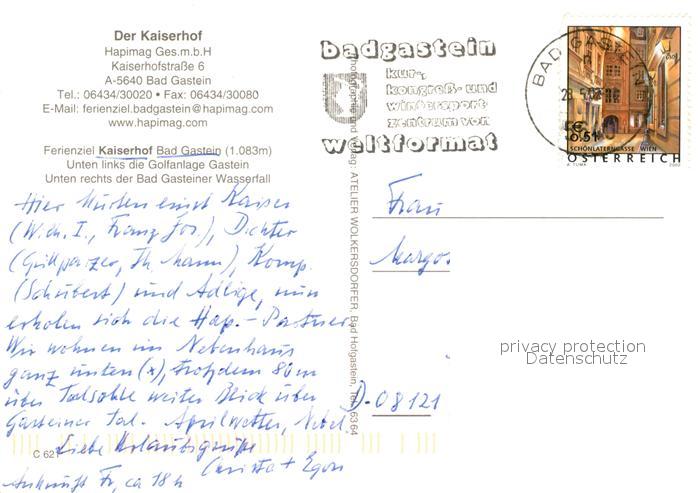 Der Kaiserhof
Hapimag Ges.m.b.H
Kaiserhofstraße 6
A-5640 Bad Gastein
Tel.: 06434/30020 • Fax: 06434/30080
E-Mail: ferienziel.badgastein@hapimag.com
www.hapimag.com
Ferienziel Kaiserhof Bad Gastein (1.083m)
Unten links die Golfanlage Gastein
Unten rechts der Bad Gasteiner Wasserfall
badgastein
kur-,
kongreß- und
wintersport
zentrum von
weltformat
BAD GASTEIN
€ 0,51
SCHÖNLATERNGASSE WIEN
ÖSTERREICH
A. TUMA 2002
Photographie und Verlag: ATELIER WOLKERSDORFER, Bad Hofgastein, Tel. 6364
Hier kurten einst Kaiser
(W.ch. I., Franz Jos.), Dichter
(Grillparzer, Th. Mann), Komp.
(Schubert) und Adlige, nun
erholen sich die Hap.-Partner.
Wir wohnen im Nebenhaus
ganz unten (x), trotzdem 80m
über Talsohle weiter Blick über
Gasteiner Tal. Aprilwetter, Nebel.
Liebe Urlaubsgrüße
Christa + Egon
Ankunft Fr, ca 18 h
C 621
Frau
Margos
D-08121
privacy protection
Datenschutz